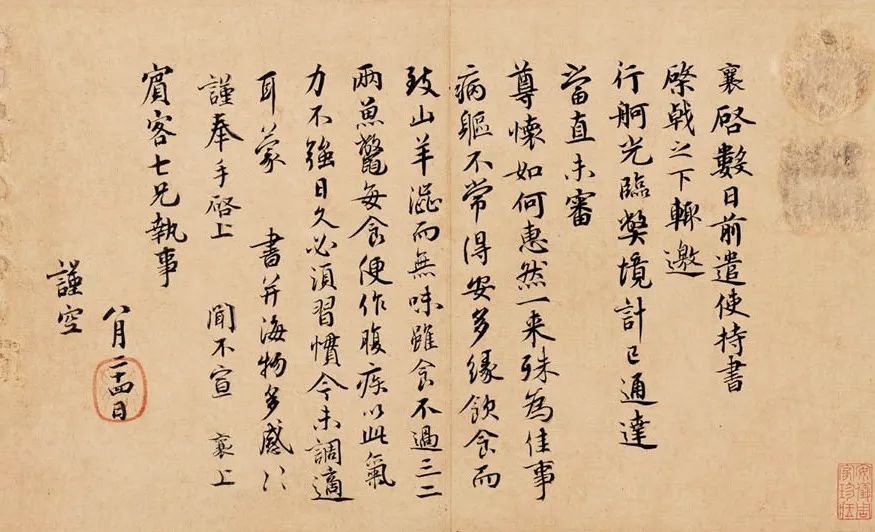 襄啓數日前遣使持書
棨戟之下輒邀
行舸光臨弊境計已通達
當直未審
尊懷如何惠然一来殊為佳事
病軀不常得安多緣飲食而
致山羊澀而無味雖食不過三二
兩魚鼈每食便作腹疾以此氣
力不強日久必須習慣今未調適
耳蒙 書并海物多感〻
謹奉手啓上 聞不宣 襄上
賓客七兄執事
八月二十四日
謹空
安儀周家珍藏